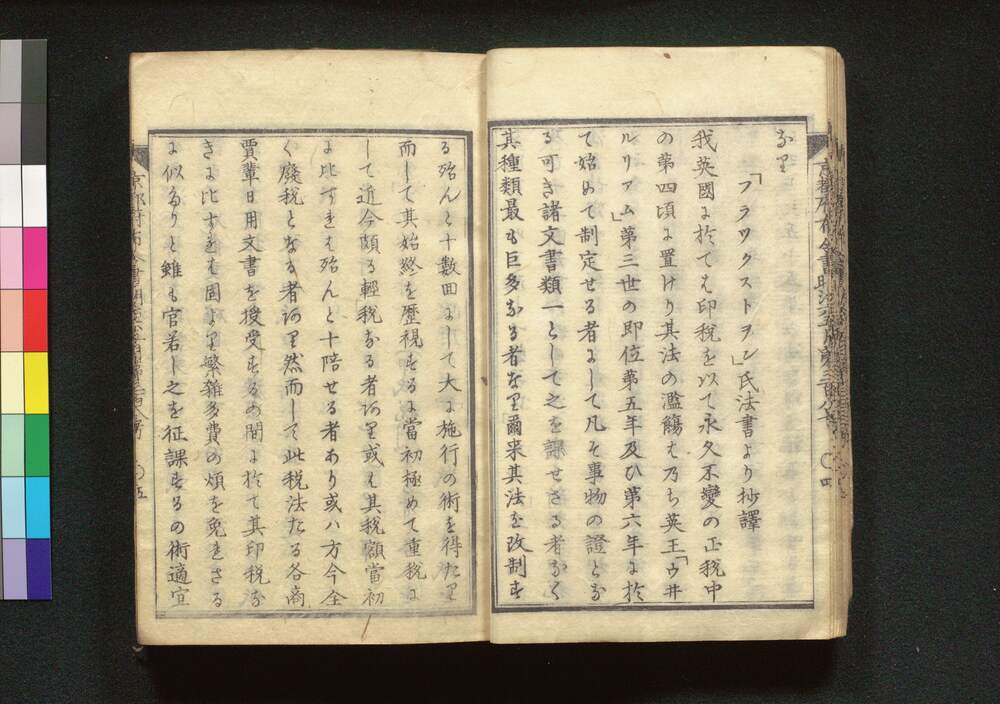 なり
「ブラックストヲン」氏法書より抄譯
我英國に於ては印税を以て永久不變の正税中
の第四項に置けり其法の濫觴は乃ち英王「ウ井
ルリアム」第三世の即位第五年及ひ第六年に於
て始めて制定せる者にして凡そ事物の證とな
る可き諸文書類一として之を課せさる者なく
其種類最も巨多なる者なり爾来其法を改制す
る殆んと十數回にして大に施行の術を得たり
而して其始終を歴視するに當初極めて重税に
して近今頗る輕税なる者あり或は其税額當初
に比すれは殆んと十陪せる者あり或ハ方今全
く廢税となる者あり然而して此税法たる各商
賈輩日用文書を授受するの間に於て其印税な
きに比すれは固より繁雜多費の煩を免れさる
に似たりと雖も官若し之を征課するの術適宜